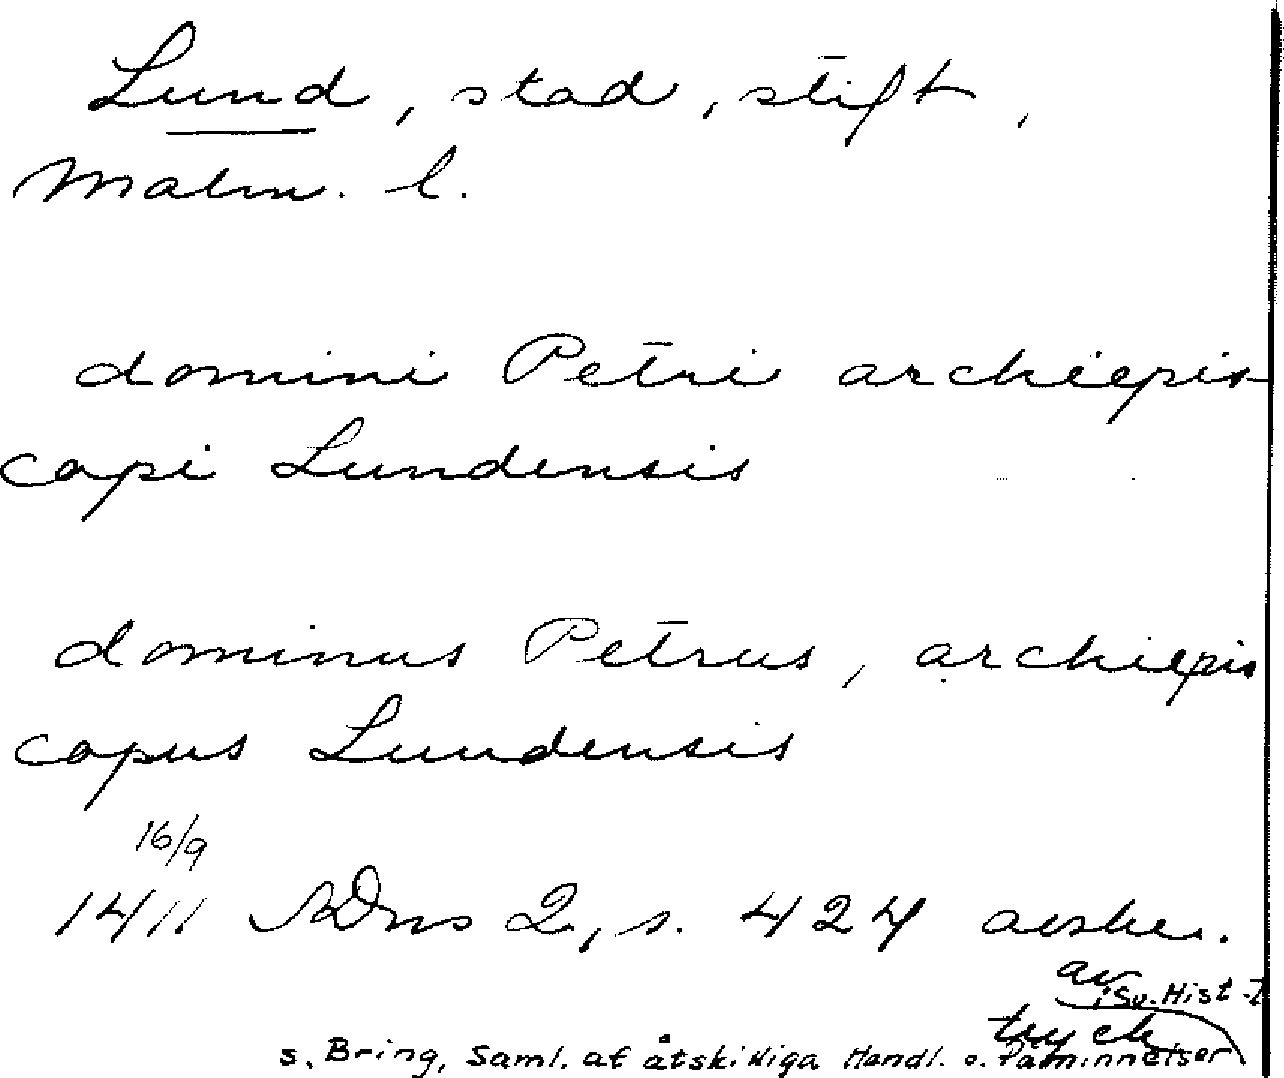 Lund, stad, stift,
Malm. l.
domini Petri archiepis-
copi Lundensis
dominus Petrus, archiepis
copus Lundensis
16/9
1411 SDns 2, s. 424 avskr.
av
i Sv. Hist.
tryck
s. Bring, Saml. af åtskilliga Handl. o. Påminnelser